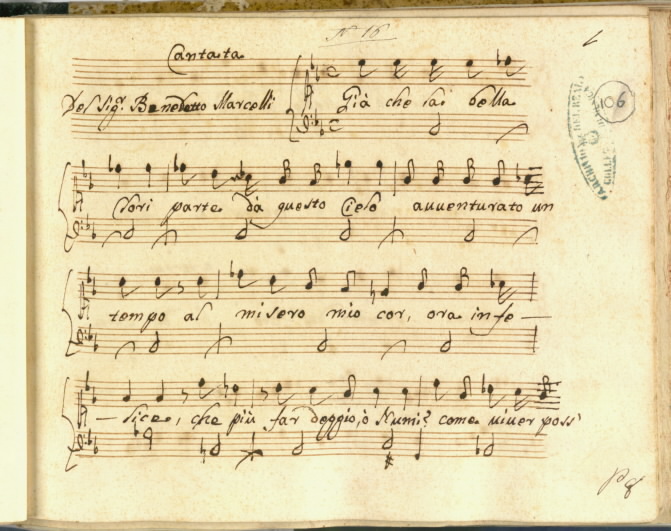 N 16
Cantata
106
Del Sig.r Benedetto Marcelli
Già che la bella
Clori parte dà questo Cielo avventurato un
tempo al misero mio cor, ora infe—
—lice, che più far deggio, ò Numi? come viver poss'